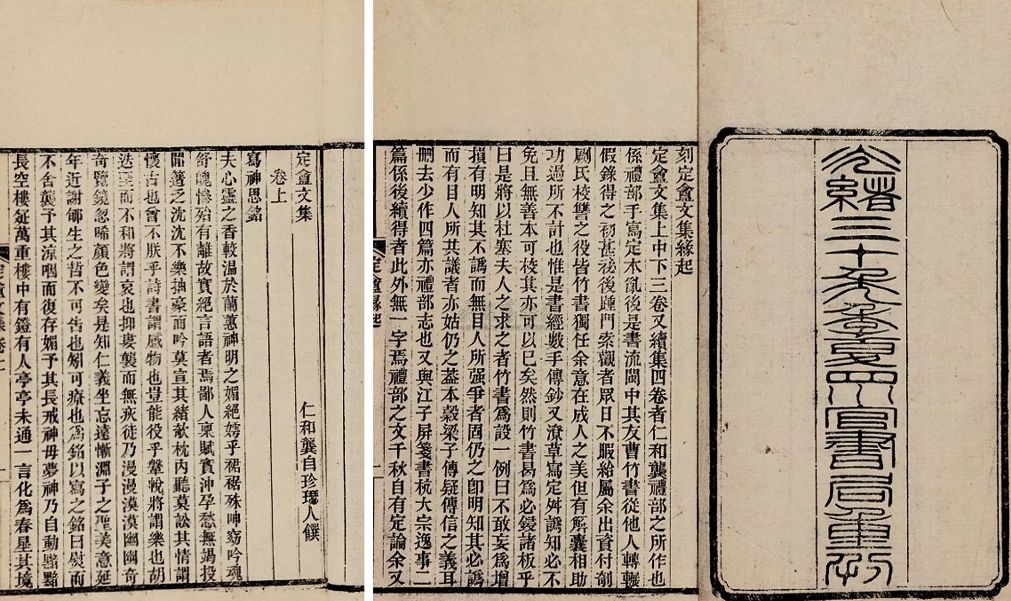 光緒三十年夏官書局重刊
刻定盦文集緣起
定盦文集上中下三卷又續集四卷者仁和龔禮部之所作也
係禮部手寫定本亂後是書流聞中其友曹竹書從他人轉輾
假錄得之初甚祕後踵門索觀者眾日不暇給屬余出資付剞
劂氏校讐之役皆竹書獨任余意在成人之美但有解囊相助
功過所不計也惟是書經數手傳鈔又潦草寫定舛譌知必不
免且無善本可校其亦可以已矣然則竹書曷為必鋟諸板乎
曰是將以杜塞夫人之求之者竹書為設一例曰不敢妄為增
損有明知其不譌而無目人所強爭者固仍之卽明知其必譌
而有目人所共議者亦姑仍之葢本穀梁子傳疑傳信之義耳
刪去少作四篇亦禮部志也又與江子屏箋書杭大宗逸事二
篇係後續得者此外無一字焉禮部之文千秋自有定論余又
定盦緣起
定盦文集
卷上
仁和龔自珍瑟人饌
寫神思銘
夫心靈之香較溫於蘭蕙神明之媚絕嫮乎裙裾殊呻窈吟魂
舒魄慘殆有離故實絕言語者焉鄙人稟賦實沖孕愁無竭投
閒簉乏沈沈不樂抽豪而吟莫宣其緒欹枕內聽莫訟其情謂
懷古也曾不朕乎詩書謂感物也豈能役乎鞶帨將謂樂也胡
迭至而不和將謂哀也抑屢襲而無疢徒乃漫漫漠漠幽幽奇
奇覽鏡忽唏顏色變矣是知仁義坐忘遠慚淵子之聖美意延
年近謝郇生之哲不可告也矧可療也爲銘以寫之銘曰熨而
不舍襲予其涼咽而復存媚予其長戒神毋夢神乃自動黯黯
長空樓疏萬重樓中有鐙有人亭亭未通一言化為春星其境
定盦文集卷上